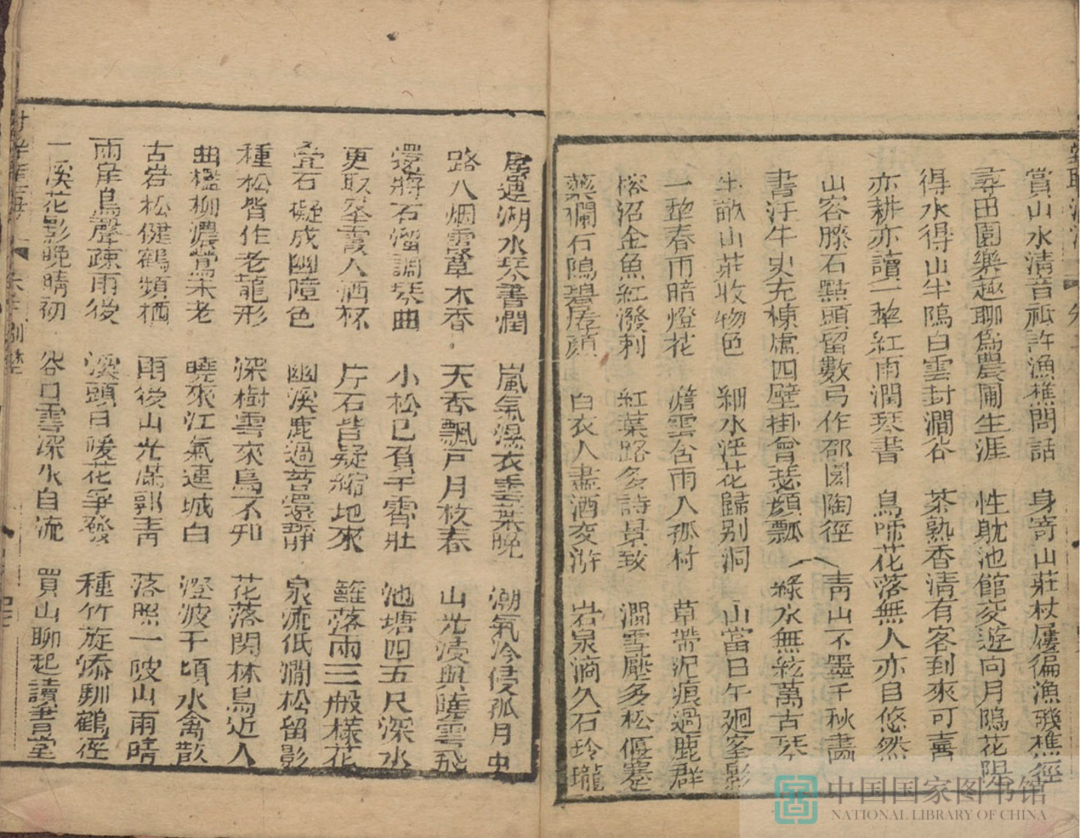 賞山水清音祗許漁樵問話 身寄山莊杖屨徧漁磯樵徑
尋田園樂趣聊爲農圃生涯 性耽池館交遊向月隖花隄
得水得山半隖白雲封澗谷 茶熟香清有客到來可喜
亦耕亦讀一犂紅雨潤琹書 鳥啼花落無人亦自悠然
山容滕石點頭留數弓作邵園陶徑 靑山不墨千秋畵
書汗牛史充棟虛四壁掛曾瑟顏瓢 綠水無絃萬古琹
牛㽗山莊收物色 細水汪花歸別洞 山當日午廻峯影
一犂春雨暗燈花 澹雲含雨入孤村 草帶泥痕過鹿群
沼金魚紅潑剌 紅葉路多詩景致 澗雪壓多松偃蹇
藥欄石隖碧孱顏 白衣人畫酒交游 岩泉滴久石玲瓏
連湖水琹書潤 嵐氣濕衣雲葉晚 潮氣冷侵孤月
路八烟雲草木香 天香飄戸月枝春 山光浸興曉雲飛
還將石溜調琹曲 小松已負干霄壯 池塘四五尺深水
更取峯霞入酒杯 片石皆疑縮地來 籬落兩三般樣花
疊石礙成幽隯色 幽溪鹿過苔還靜 泉流低澗松留影
種松皆作老龍形 深樹雲來鳥不知 花落閑林鳥近人
曲檻柳濃鶯未老 曉來江氣連城白 澄波千頃水禽散
古岩松健鶴頻栖 雨後山光滿郭靑 落照一陂山雨晴
兩岸鳥聲疎雨後 溪頭日暖花爭發 種竹旋添馴鶴徑
一溪花影晚晴初 谷口雲深水自流 買山聊起讀書堂
中国国家图书馆
NATIONAL LIBRARY OF CHINA